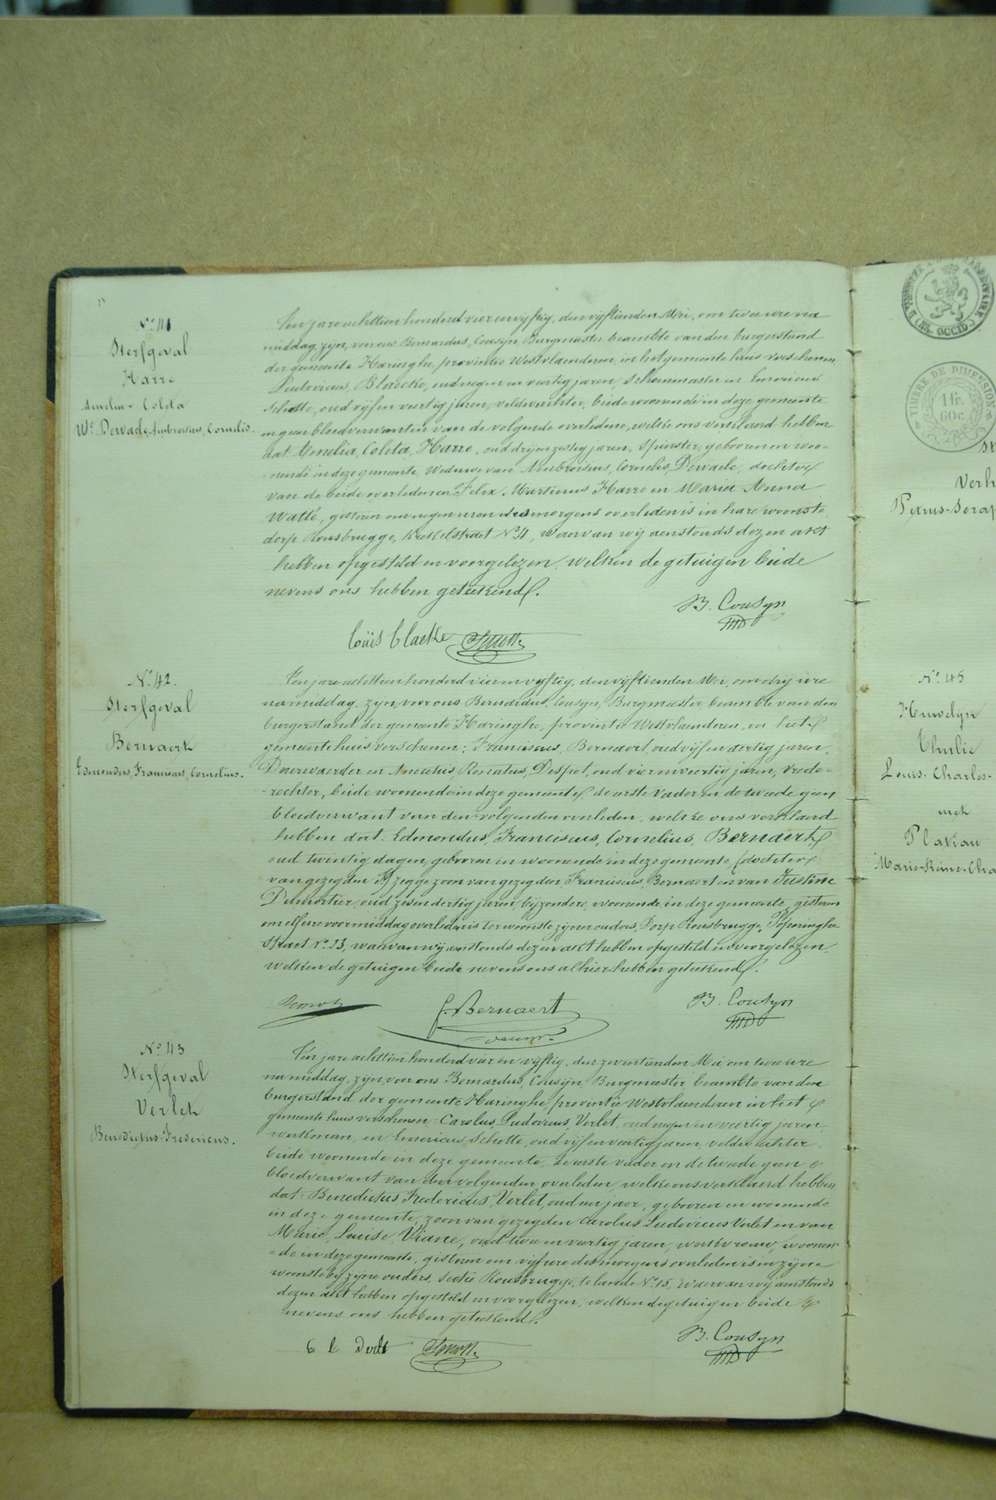 N° 41
Sterfgeval
Harre
Amelia Colita
We Dewaele, Ambrosius, Cornelis.
Ten jare achttien honderd vier en vyftig, den vyftienden Mei, om twee ure na
middag, zyn voor ons Bernardus, Cousyn Burgmeester beambte van den burgerstand
der gemeente Haringhe, provintie Westvlaanderen in het gemeente huis verschenen,
Ludovicus, Blaecke, oud negen en veertig jaren, en Emericus
Schotte, oud vyf en veertig jaren, veldwachter, beide woonende in deze gemeente
en geen bloedverwanten van de volgende overledene, welke ons verklaard hebben
dat Amelia, Colita, Harre, oud dryen zestig jaren, spinster, geboren en woo-
nende in deze gemeente, Weduwe van Ambrosius, Cornelis, Dewaele, dochter
van de beide overledenen Felix, Martinus Harre en Maria Anna
Watté, gisteren om negen uren des morgens overleden is in hare woonste,
dorp Rousbrugge, straet N° 4, Waervan wy aenstonds dezen akt
hebben opgesteld en voorgelezen, welken de getuigen beide
nevens ons hebben geteekend.
B. Cousyn
Louis Blaeke
N° 42.
Sterfgeval
Bernaert
Edmondus, Franciscus, Cornelius.
Ten jare achttien honderd vier en vyftig, den vyftienden Mei, om dry ure
na middag, zyn, voor ons Bernardus, Cousyn, Burgmeester beambte van den
burgerstand der gemeente Haringhe, provintie Westvlaanderen, in het
gemeentehuis verschenen; Franciscus, Bernaert, oud vyf en dertig jaren,
Deurwaerder en Anecletus, Renatus, Despot, oud vier en veertig jaren, vrede-
-rechter, beide woonende in deze gemeente de eerste Vader en de tweede geen
bloedverwant van den volgenden overleden, welke ons verklaard
hebben dat Edmondus, Franciscus, Cornelius, Bernaert
oud twintig dagen, geboren en woonende in deze gemeente, dochter
van gezegden zegge zoon van gezegden Franciscus, Bernaert en van Justine
Demortier, oud zes en dertig jaren, byzondere, woonende in deze gemeente, gisteren
om elf ure voormiddag overleden is ter woonste zyner ouders, Dorp Rousbrugge, Poperinghe
Straet N° 23, waervan wy aenstonds dezen akt hebben opgesteld en voorgelezen,
welken de getuigen beide nevens ons alhier hebben geteekend.
F. Bernaert
B. Cousyn
N° 43
Sterfgeval
Verlet
Benedictus Fredericus.
Ten jare achttien honderd vier en vyftig, den zeventienden Mei om twee ure
na middag, zyn voor ons Bernardus, Cousyn Burgmeester beambte van den
burgerstand der gemeente Haringhe, provintie Westvlaanderen in het
gemeente huis verschenen Carolus Ludovicus, Verlet, oud negen en veertig jaren,
werkman, en Emericus, Schotte, oud vyf en veertig jaren veldwachter
beide woonende in deze gemeente, de eerste vader en de tweede geen
bloedverwant van den volgenden overleden welke ons verklaard hebben
dat Benedictus Fredericus, Verlet, oud een jaer, geboren en woonende
in deze gemeente, zoon van gezegden Carolus Ludovicus Verlet en van
Marie, Louise, Viane, oud twee en veertig jaren, werkvrouw, woonen-
-de in deze gemeente, gisteren om vyf ure des morgens overleden is in zyne
woonste by zyne ouders, sectie Rousbrugge, te lande N° 15, Waervan wy aenstonds
dezen akt hebben opgesteld en voorgelezen, welken de getuigen beide
nevens ons hebben geteekend.
B. Cousyn
TIMBRE DE DIMENSION
1 fr.
60 c.
(FL. OCCID.)
Verh
Petrus-Serap
N° 45
Huwelyk
Thulie
Louis-Charles-
met
Plateau
Marie-Reine-Cha